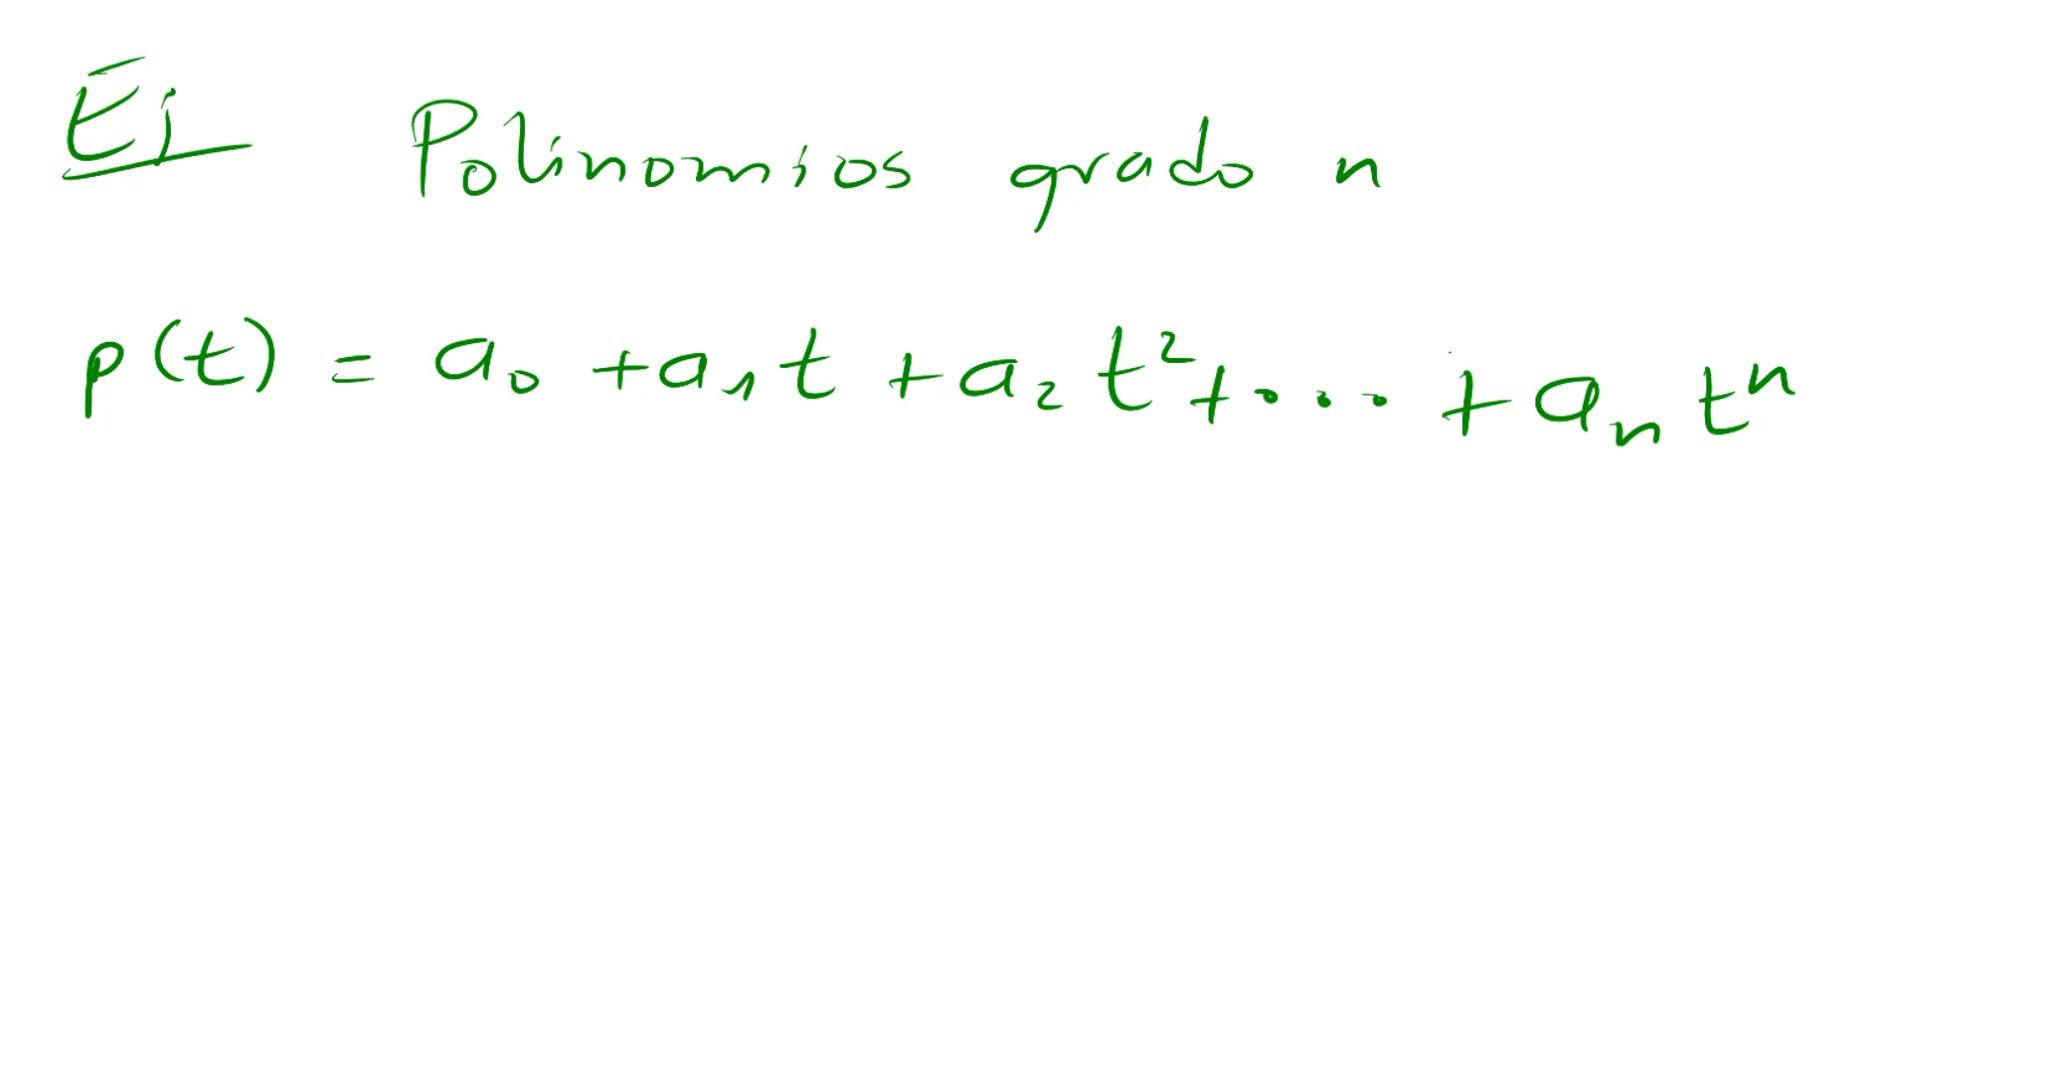 Ej Polinomios grado n
p(t) = a₀ + a₁t + a₂t² + ... + aₙtⁿ